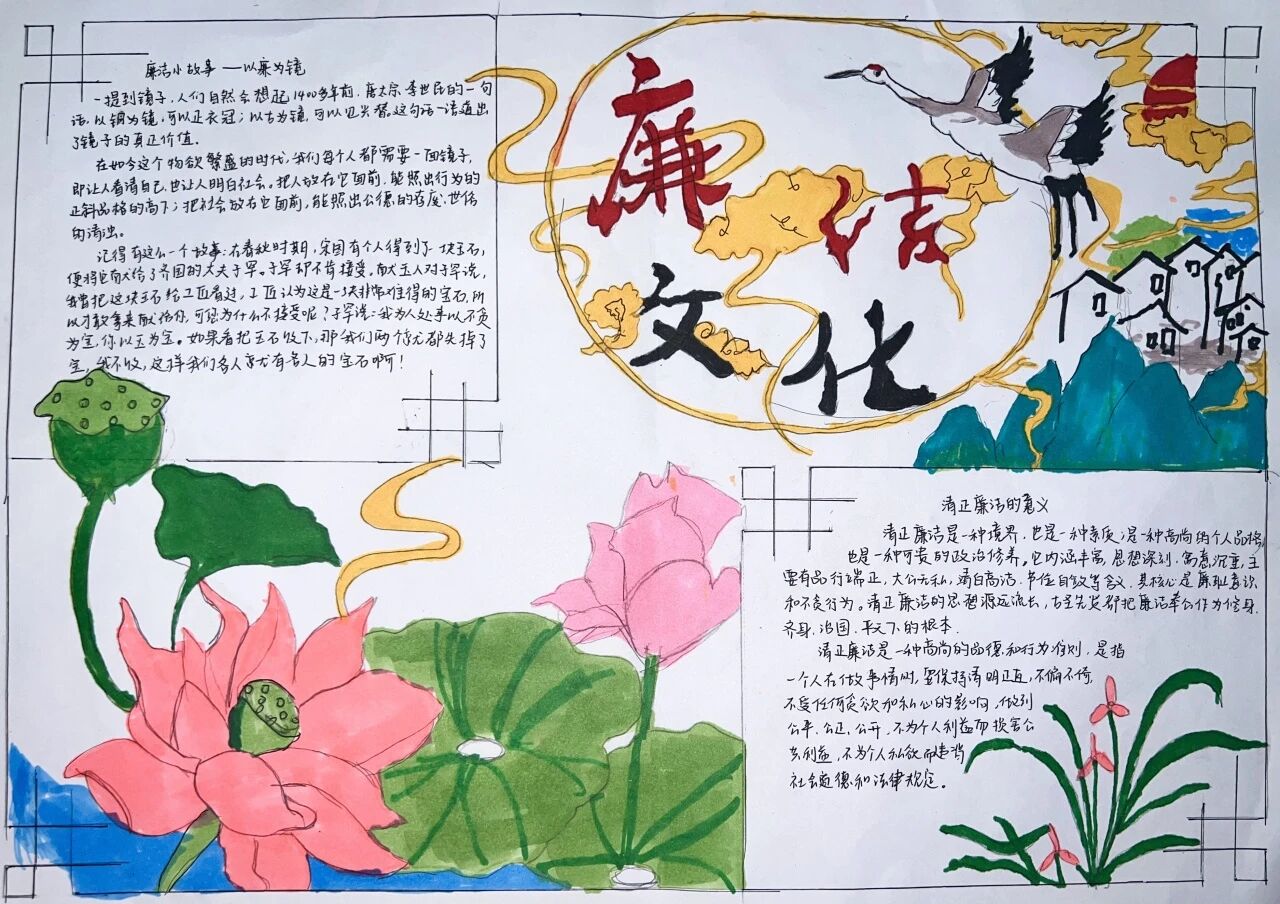 廉洁文化
廉洁小故事 —以廉为镜
一提到镜子,人们自然会想起1400多年前,唐太宗李世民的一句
话,以铜为镜,可以正衣冠;以古为镜,可以见兴替。这句话一语道出
了镜子的真正价值.
在如今这个物欲繁盛的时代,我们每个人都需要一面镜子,
即让人看清自己,也让人明白社会。把人放在它面前,能照出行为的
正斜品格的高下;把社会放在它面前,能照出公德的程度、世俗
的清浊。
记得有这么一个故事:在春秋时期,宋国有个人得到了一块玉石,
便将它南大给了齐国的大夫子罕。子罕却不肯接受。献玉人对子罕说,
我曾把这块玉石给工匠看过,工匠认为这是一块非常难得的宝石,所
以才敢拿来献给你,可您为什么不接受呢?子罕说:我为人处事以不贪
为宝,你以玉为宝。如果看把玉石收下,那我们两个就都失掉了
宝,我不收,这样我们各人就有各人的宝石啊!
清正廉洁的意义
清正廉洁是一种境界,也是一种素质;是一种高尚的个人品格,
也是一种可贵的政治修养。它内涵丰富,思想深刻,寓意沉重,主
要有品行端正,大公无私,清白高洁,节俭自敛等含义,其核心是廉耻意识
和不贪行为。清正廉洁的思想源远流长,古圣先贤都把廉洁奉公作为修身、
齐身、治国、平天下的根本.
清正廉洁是一种高尚的品德和行为准则,是指
一个人在做事情时,要保持清明正直,不偏不倚,
不受任何贪欲和私心的影响,做到
公平、公正、公开,不为个人利益而损害公
共利益,不为个人私欲而违背
社会道德和法律规定。